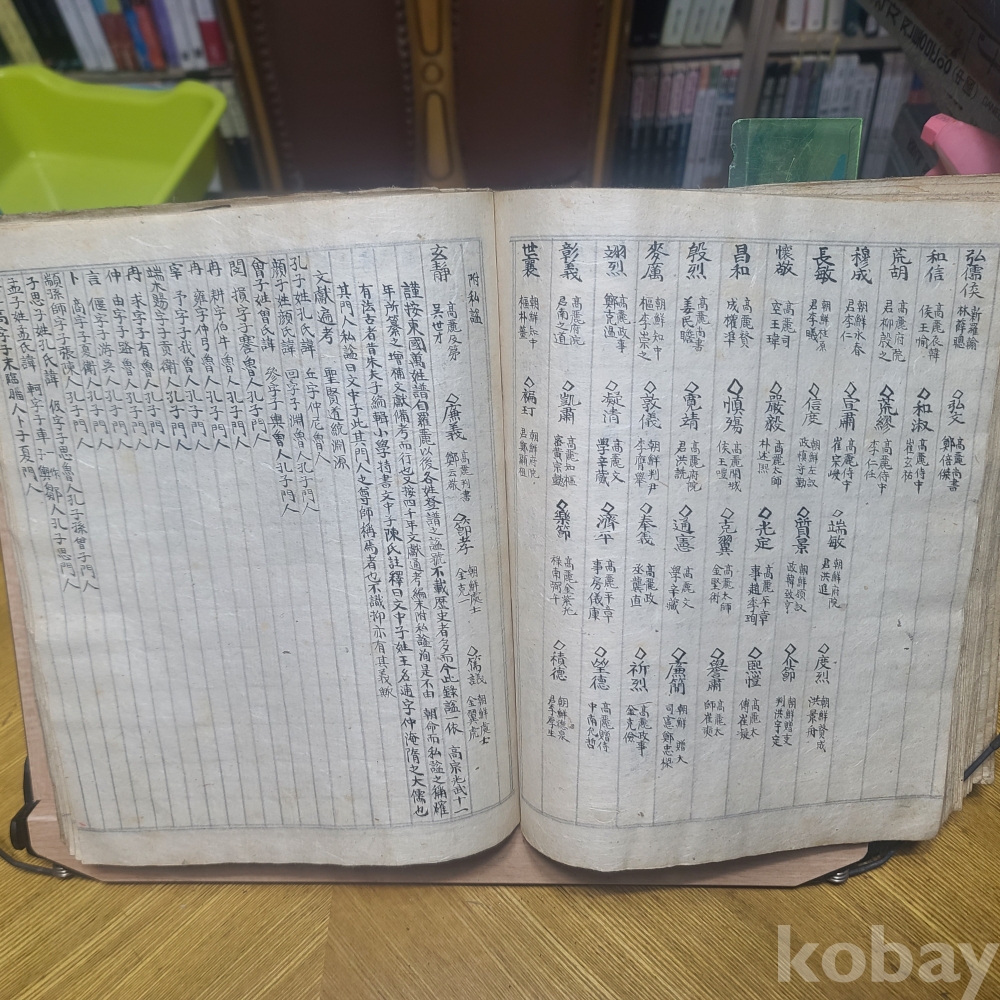 弘儒侯 新羅翰林薛聰 ◇弘文 高麗尚書鄭倍傑
和信 高麗辰韓侯王愉 ◇和淑 高麗侍中崔玄祐
荒胡 高麗府院君柳殷之 ◇荒繆 高麗侍中李仁任
穆成 朝鮮永春君李仁 ◇宣肅 高麗侍中崔宗峻 ◇端敏 朝鮮府院君洪進 ◇度烈 朝鮮贊成洪景舟
長敏 朝鮮君李曦 ◇信度 朝鮮左議政愼守勤 ◇質景 朝鮮領議政韓致亨 ◇介節 朝鮮贈吏判洪宇定
懷敬 高麗司空王瑋 ◇嚴毅 高麗太師朴述熙 ◇光定 高麗平章事趙季珣 ◇熙愷 高麗太傅崔擬
昌和 高麗贊成權準 ◇愼殤 高麗開城侯王暟 ◇克翼 高麗太師金堅術 ◇譽肅 高麗太師崔奭
殷烈 高麗尚書姜民瞻 ◇寬靖 高麗府院君洪詵 ◇通憲 高麗文學辛蕆 ◇廉簡 朝鮮贈大司憲鄭忠樑
麥厲 朝鮮知中樞李崇之 ◇敦義 朝鮮判尹李膺擧 ◇奉義 高麗政丞龔直 ◇祈烈 高麗政事金克儉
翊烈 高麗政事鄭克溫 ◇凝清 高麗文學辛蕆 ◇濟平 高麗平章事房儀康 ◇塋德 高麗贈侍中南允哲
彰義 高麗府院君南之道 ◇凱肅 高麗知樞密黃宗勤 ◇樂節 高麗金紫光祿南洞平 ◇積德 朝鮮德泉君李厚生
世襄 朝鮮知中樞朴薑 ◇福玎 朝鮮府院君鄭顯祖
附私謚
玄靜 高麗及第吳世才 ◇廉義 高麗判書鄭云敬 ◇節孝 朝鮮處士金克一 ◇篤設 朝鮮處士金翼虎
謹按東國萬姓譜自羅麗以後各姓登譜之謚號不載歷史者多而今此錄謚一依 高宗光武十一
年所纂之增補文獻備考而行也又按四千年文獻通考編末附私謚洵是不由 朝命而私謚之稱確
有法古者昔朱夫子編輯小學持書文中子陳氏註釋曰文中子姓王名通字仲淹隋之大儒也
其門人私謚曰文中子此其門人之尊師稱焉者也不識抑亦有其義歟
文獻通考 聖賢道統淵源
孔子姓孔氏諱 丘字仲尼魯人
顏子姓顏氏諱 回字子淵魯人孔子門人
曾子姓曾氏諱 參字子輿魯人孔子門人
閔 損字子騫魯人孔子門人
冉 耕字伯牛魯人孔子門人
冉 雍字仲弓魯人孔子門人
宰 予字子我魯人孔子門人
端木賜字子貢衛人孔子門人
冉 求字子有魯人孔子門人
仲 由字子路魯人孔子門人
言 偃字子游吳人孔子門人
卜 商字子夏衛人孔子門人
顓孫師字子張陳人孔子門人
子思子姓孔氏諱 伋字子思魯人孔子孫曾子門人
孟子姓孟氏諱 軻字子車一作輿鄒人孔子思門人
高字子末臨腦人卜子夏門人
kobay